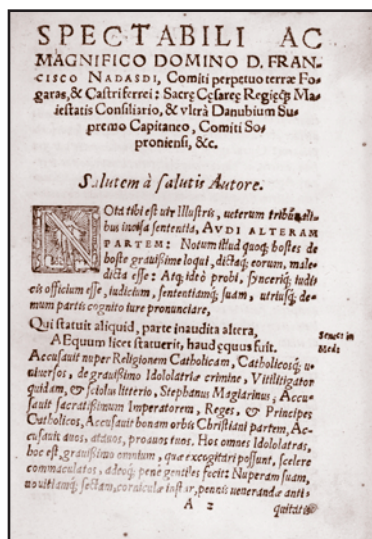 SPECTABILI AC
MAGNIFICO DOMINO D. FRAN-
CISCO NADASDI, Comiti perpetuo terræ Fo-
garas, & Castri ferrei: Sacrę Cęsareę Regięq́; Ma-
iestatis Consiliario, & vltrà Danubium Su-
premo Capitaneo, Comiti So-
proniensi, &c.
Salutem à salutis Autore.
NOta tibi est uir Illustris, ueterum tribunali-
bus incisa sententia, AVDI ALTERAM
PARTEM: Notum illud quoq; hostes de
hoste grauißime loqui, dictaq; eorum, male-
dicta esse: Atq; ideò probi, synceriq; iudi-
cis officium esse, iudicium, sententiamq; suam, utriusq; de-
mum partis cognito iure pronunciare,
Qui statuit aliquid, parte inaudita altera,
AEquum licet statuerit, haud ęquus fuit.
Senec: in
Med:
Accusauit nuper Religionem Catholicam, Catholicosq; u-
niuersos, de grauißimo Idololatriæ crimine, Vitilitigator
quidam, & sciolus litterio, Stephanus Magiarinus; Accu-
sauit sacratißimum Imperatorem, Reges, & Principes
Catholicos, Accusauit bonam orbis Christiani partem, Ac-
cusauit auos, atauos, proauos tuos. Hos omnes Idololatras,
hoc est, grauißimo omnium, quæ excogitari possunt, scelere
commaculatos, adeoq; penè gentiles fecit: Nuperam suam,
nouitiamq; sectam, corniculæ instar, pennis uenerandæ anti-
A 2
quitatis